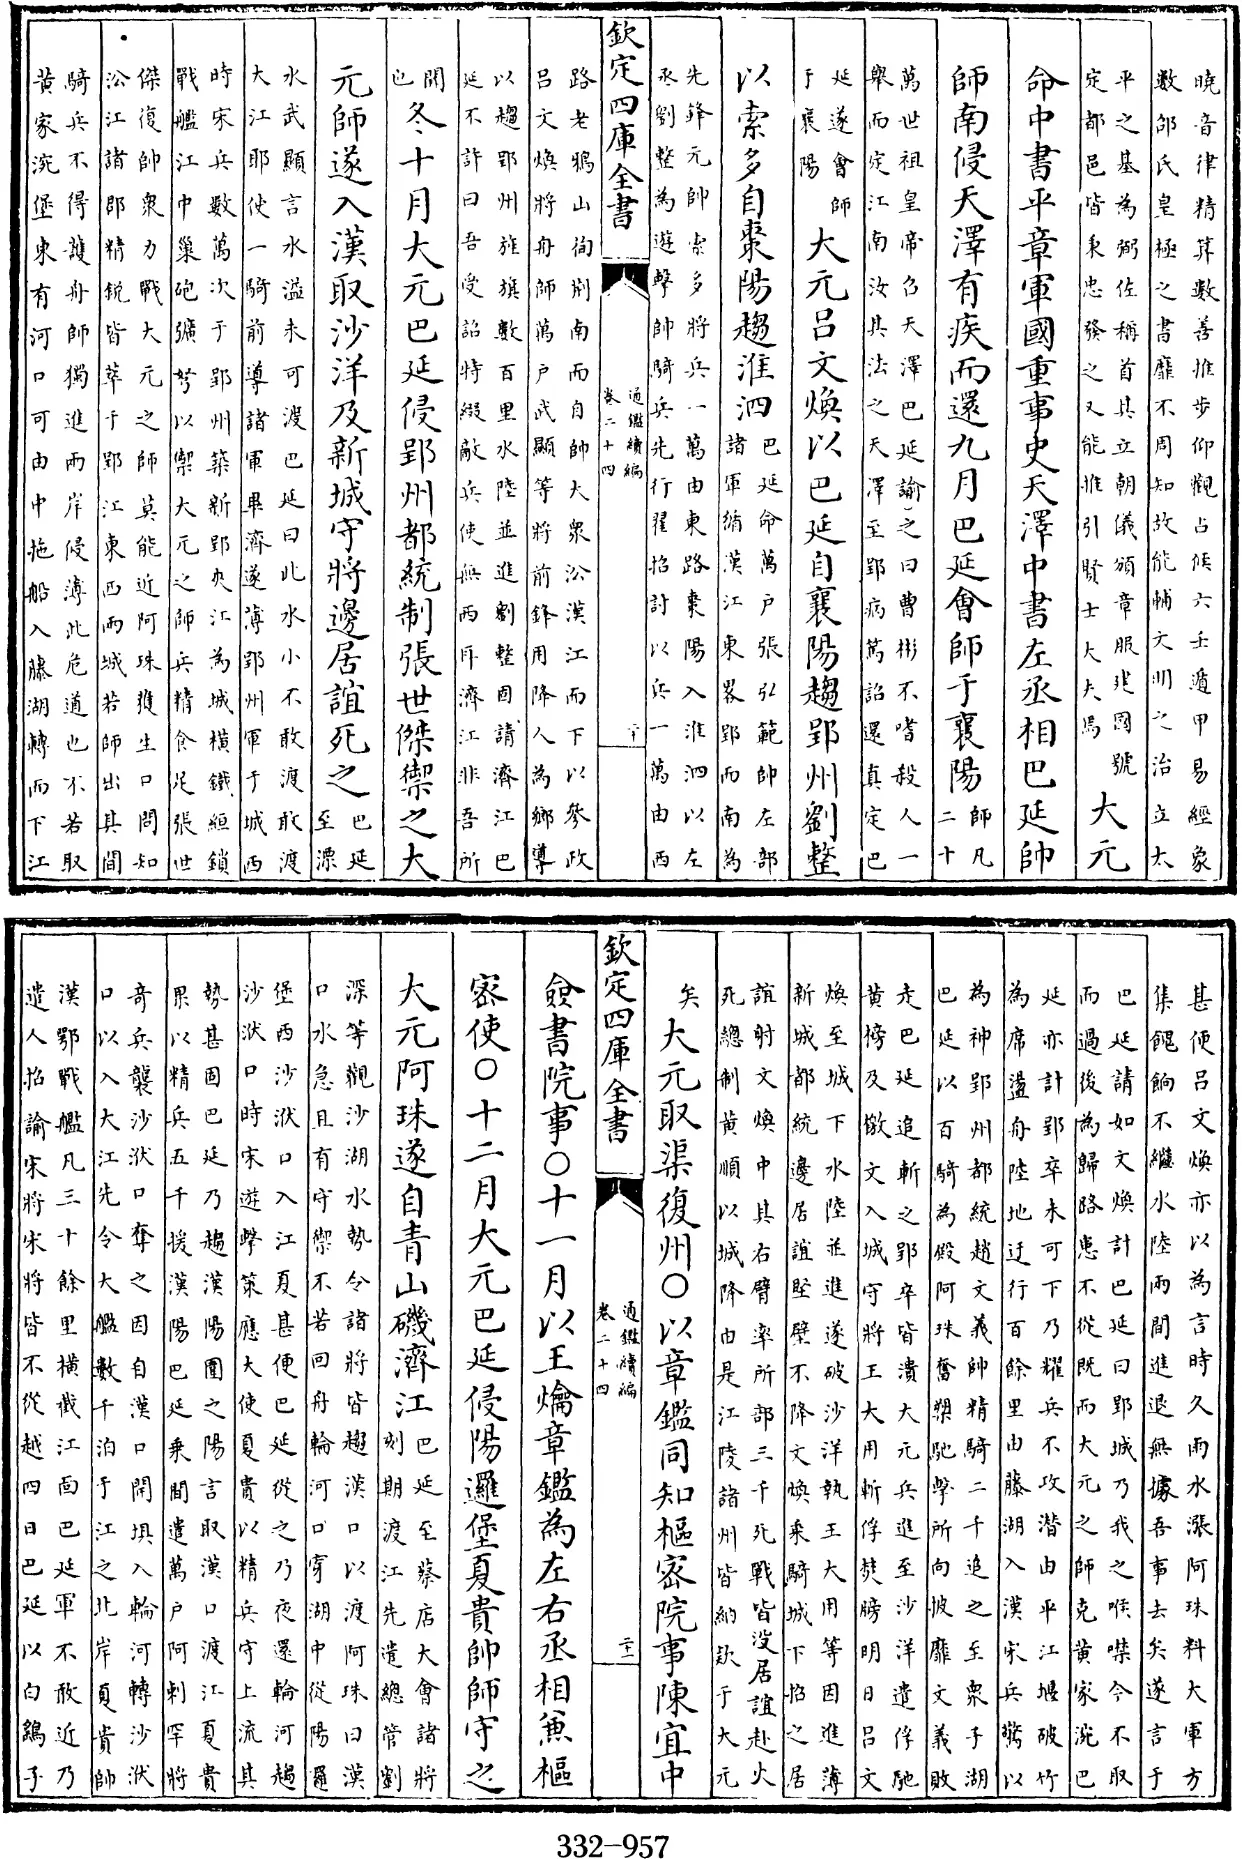 曉音律精算數善推步仰觀占候六壬遁甲易經象
數邵氏皇極之書靡不周知故能輔文明之治立太
平之基為弼佐稱首其立朝儀頒章服建國號
定都邑皆秉忠發之又能推引賢士大夫焉
大元
命中書平章軍國重事史天澤中書左丞相巴延帥
師南侵天澤有疾而還九月巴延會師于襄陽
師凡
二十
萬世祖皇帝召天澤巴延諭之曰曹彬不嗜殺人一
舉而定江南汝其法之天澤至郢病篤詔還真定巴
延遂會師
于襄陽
大元呂文煥以巴延自襄陽趨郢州劉整
以索多自棗陽趨淮泗
巴延命萬户張弘範帥左部
諸軍循漢江東畧郢而南為
先鋒元帥索多將兵一萬由東路棗陽入淮泗以左
丞劉整為遊擊帥騎兵先行翟招討以兵一萬由西
欽定四庫全書
通鑑續編
卷二十四
二十
路老鴉山徇荆南而自帥大衆沿漢江而下以參政
呂文煥將舟師萬户武顯等將前鋒用降人為鄉導
以趨郢州旌旗數百里水陸並進劉整固請濟江巴
延不許曰吾受詔特綴敵兵使無西耳濟江非吾所
聞
也
冬十月大元巴延侵郢州都統制張世傑禦之大
元師遂入漢取沙洋及新城守將邊居誼死之
巴延
至漂
水武顯言水溢未可渡巴延曰此水小不敢渡敢渡
大江耶使一騎前導諸軍畢濟遂薄郢州軍于城西
時宋兵數萬次于郢州築新郢夾江為城橫鐵絙鎖
戰艦江中巢砲彍弩以禦大元之師兵精食足張世
傑復帥衆力戰大元之師莫能近阿珠獲生口問知
沿江諸郡精銳皆萃于郢江東西兩城若師出其間
騎兵不得護舟師獨進兩岸侵溥此危道也不若取
黃家浣堡東有河口可由中拖船入藤湖轉而下江
甚便呂文煥亦以為言時久雨水漲阿珠料大軍方
集餽餉不繼水陸兩間進退無據吾事去矣遂言于
巴延請如文煥計巴延曰郢城乃我之喉襟今不取
而過後為歸路患不從既而大元之師克黃家浣巴
延亦計郢卒未可下乃耀兵不攻潛由平江堰破竹
為席盪舟陸地迂行百餘里由藤湖入漢宋兵驚以
為神郢州都統趙文義帥精騎二千追之至泉子湖
巴延以百騎為殿阿珠奮槊馳擊所向披靡文義敗
走巴延追斬之郢卒皆潰大元兵進至沙洋遣俘馳
黃榜及檄文入城守將王大用斬俘焚榜明日呂文
煥至城下水陸並進遂破沙洋執王大用等因進薄
新城都統邊居誼堅壁不降文煥乘騎城下招之居
誼射文煥中其右臂率所部三千死戰皆没居誼赴火
死總制黃順以城降由是江陵諸州皆納欵于大元
矣
大元取渠復州〇以章鑑同知樞密院事陳宜中
欽定四庫全書
通鑑續編
卷二十四
二十一
僉書院事〇十一月以王爚章鑑為左右丞相兼樞
密使〇十二月大元巴延侵陽邏堡夏貴帥師守之
大元阿珠遂自青山磯濟江
巴延至蔡店大會諸將
刻期渡江先遣總管劉
深等觀沙湖水勢令諸將皆趨漢口以渡阿珠曰漢
口水急且有守禦不若回舟輪河口穿湖中從陽邏
堡西沙洑口入江夏甚便巴延從之乃夜還輪河趨
沙洑口時宋遊擊策應大使夏貴以精兵守上流其
勢甚固巴延乃趨漢陽圍之陽言取漢口渡江夏貴
果以精兵五千援漢陽巴延乘間遣萬户阿剌罕將
奇兵襲沙洑口奪之因自漢口開垻入輪河轉沙洑
口以入大江先令大艦數千泊于江之北岸夏貴帥
漢鄂戰艦凡三十餘里橫截江面巴延軍不敢近乃
遣人招諭宋將宋將皆不從越四日巴延以白鷂子
332-957